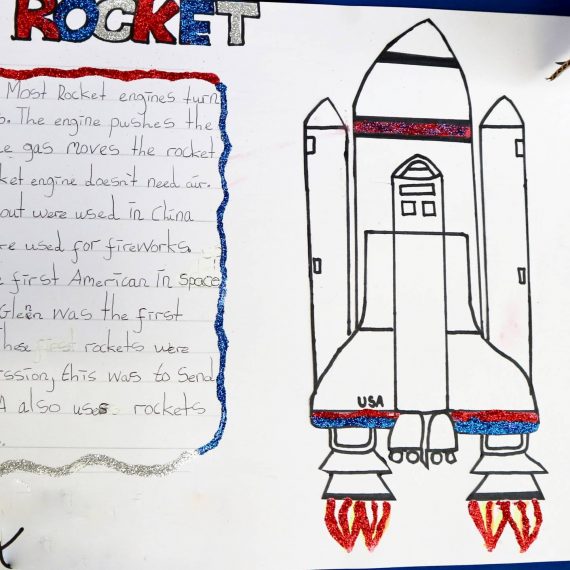 ROCKET
Most Rocket engines turn
. The engine pushes the
gas moves the rocket
ket engine doesn't need air.
out were used in China
re used for fireworks.
first American in space
Glenn was the first
These first rockets were
ission, this was to send
A also uses rockets
USA